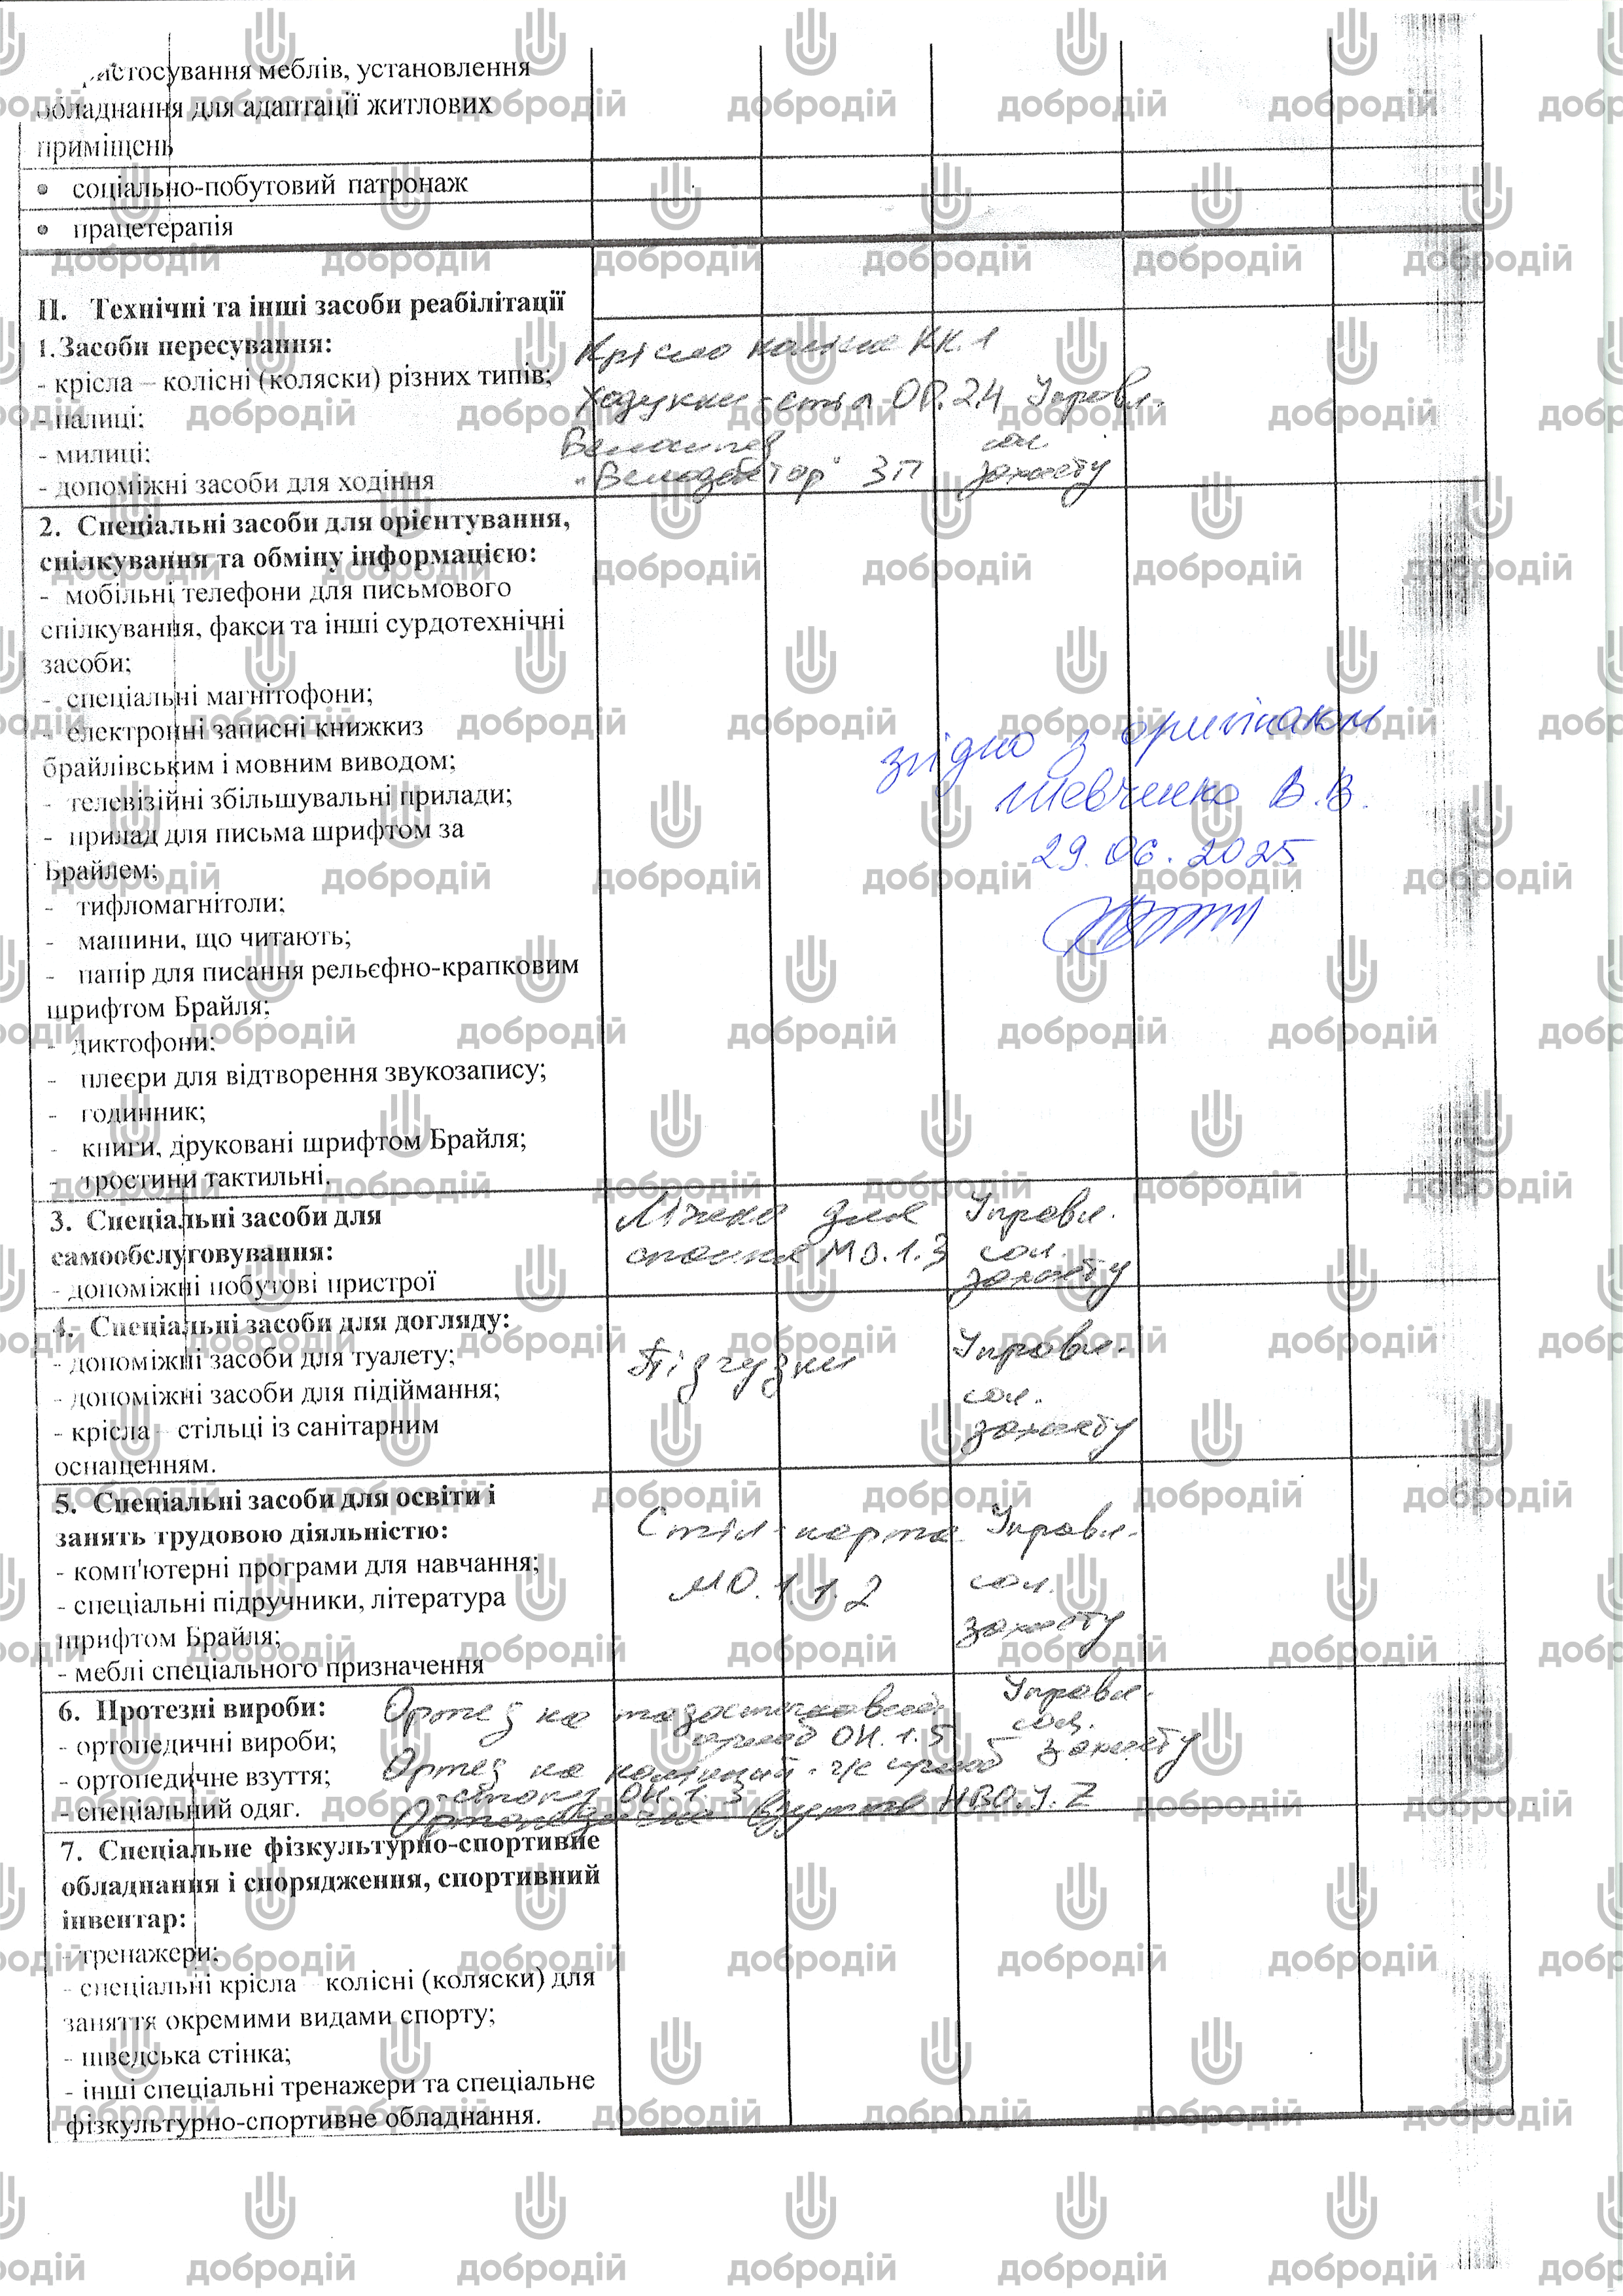 обладнання для адаптації житлових
приміщень
• соціально-побутовий патронаж
• працетерапія
ІІ. Технічні та інші засоби реабілітації
1.Засоби пересування:
- крісла – колісні (коляски) різних типів;
- палиці;
- милиці;
- допоміжні засоби для ходіння
Крісло колісне КК.1
Ходунки-стіл ОР.24 Управл.
Велосипед сол.
"Велозбатор" ЗП захисту
2. Спеціальні засоби для орієнтування,
спілкування та обміну інформацією:
- мобільні телефони для письмового
спілкування, факси та інші сурдотехнічні
засоби;
- спеціальні магнітофони;
- електронні записні книжкиз
брайлівським і мовним виводом;
- телевізійні збільшувальні прилади;
- прилад для письма шрифтом за
Брайлем;
- тифломагнітоли;
- машини, що читають;
- папір для писання рельєфно-крапковим
шрифтом Брайля;
- диктофони;
- плеєри для відтворення звукозапису;
- годинник;
- книги, друковані шрифтом Брайля;
- тростини тактильні.
згідно з оригіналом
Шевченко В.В.
29.06.2025
3. Спеціальні засоби для
самообслуговування:
- допоміжні побутові пристрої
Ліжко для Управл.
спання МО.1.3 сол.
захисту
4. Спеціальні засоби для догляду:
- допоміжні засоби для туалету;
- допоміжні засоби для підіймання;
- крісла – стільці із санітарним
оснащенням.
Підгузки Управл.
сол.
захисту
5. Спеціальні засоби для освіти і
занять трудовою діяльністю:
- комп'ютерні програми для навчання;
- спеціальні підручники, література
шрифтом Брайля;
- меблі спеціального призначення
Стіл-парта Управл.
МО.1.1.2 сол.
захисту
6. Протезні вироби:
- ортопедичні вироби;
- ортопедичне взуття;
- спеціальний одяг.
Ортез на тазостегновий Управл.
суглоб ОН.1.5 соц.
Ортез на колінний - г/с суглоб захисту
стопу ОН.1.3
Ортопедичне взуття НВО.У.Z
7. Спеціальне фізкультурно-спортивне
обладнання і спорядження, спортивний
інвентар:
- тренажери;
- спеціальні крісла – колісні (коляски) для
заняття окремими видами спорту;
- шведська стінка;
- інші спеціальні тренажери та спеціальне
фізкультурно-спортивне обладнання.
добродій